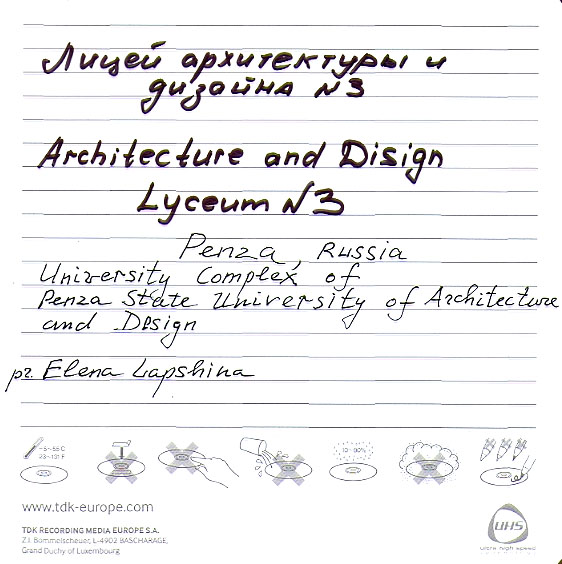 Лицей архитектуры и
дизайна N3
Architecture and Disign
Lyceum N3
Penza, Russia
University Complex of
Penza State University of Architecture
and Design
pr. Elena Lapshina
-5~55 C
23~131 F
10~90%
www.tdk-europe.com
TDK RECORDING MEDIA EUROPE S.A.
Z.I. Bommelscheuer, L-4902 BASCHARAGE,
Grand Duchy of Luxembourg
UHS
ultra high speed